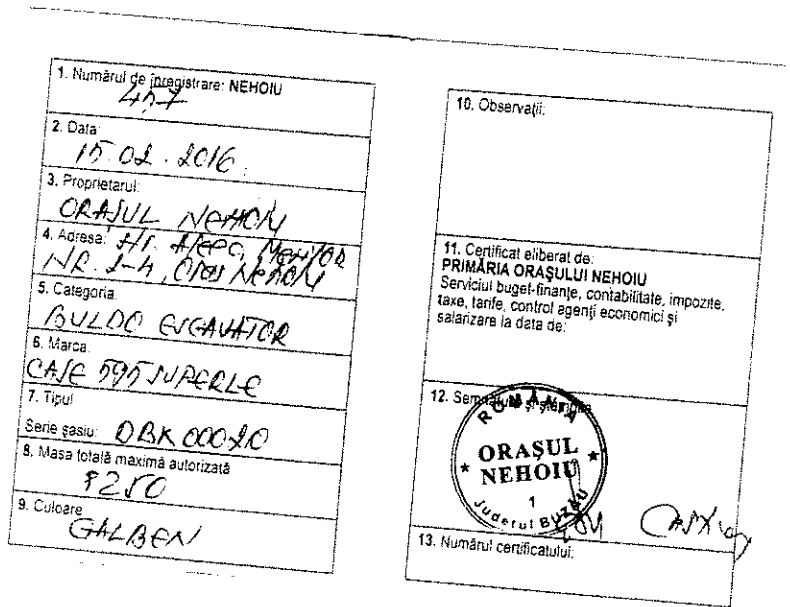 1. Numărul de înregistrare: NEHOIU
457
2. Data:
15.02.2016.
3. Proprietarul:
ORAȘUL NEHOIU
4. Adresa: Str. Aleea
NR. 2-4, Oraș NEHOIU
5. Categoria.
BULDO EXCAVATOR
6. Marca.
CASE 595 SUPERLE
7. Tipul
Serie șasiu: DBK 00020
8. Masa totală maximă autorizată
8250
9. Culoare
GALBEN
10. Observații:
11. Certificat eliberat de:
PRIMĂRIA ORAȘULUI NEHOIU
Serviciul buget-finanțe, contabilitate, impozite,
taxe, tarife, control agenți economici și
salarizare la data de:
12. Semnătura și ștampila
ROMÂNIA
ORAȘUL
NEHOIU
1
Județul BUZĂU
13. Numărul certificatului: